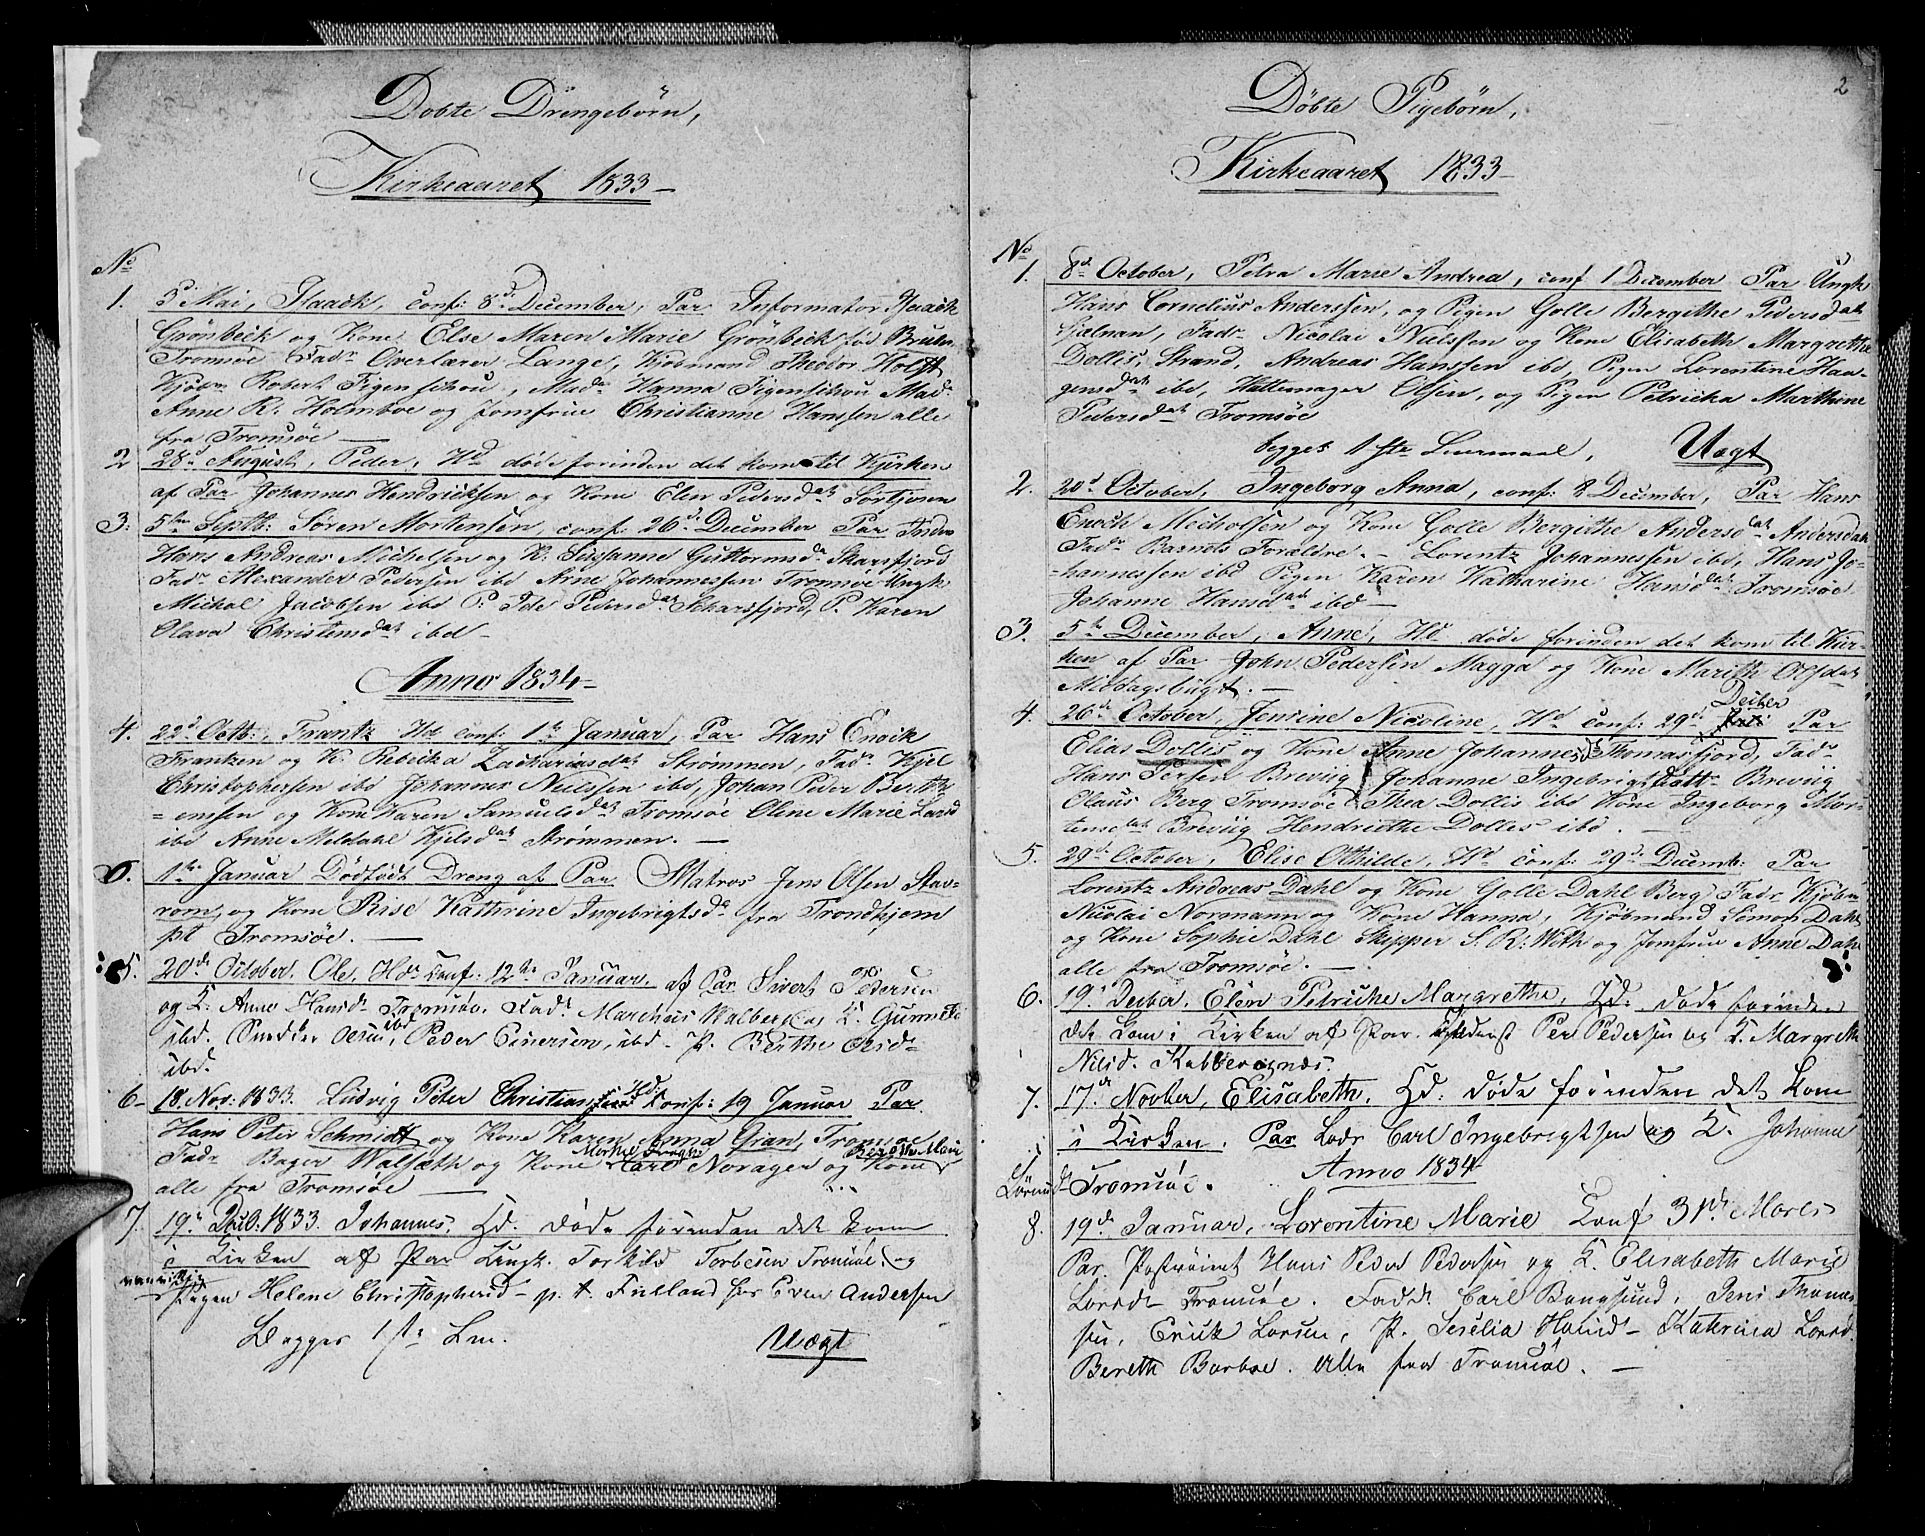 Døbte Drengebørn,
Kirkeaaret 1833
No
1. 5 Mai, Isaack, conf: 8de December, Par Informator Isaack
Grönbeck og Kone Else Maren Marie Grönbeck fød Bruun
Tromsøe Fadr Overlærer Lange, Kjöbmand Theodor Holst
Kjöbm Robert Figenschou, Mad. Hanna Figenschou Mad.
Anne R. Holmboe og Jomfrue Christianne Hanssen alle
fra Tromsöe
2 28d August, Peder, Hd døde forinden det kom til Kjerken
af Par Johannes Hendricksen og Kone Elen Pedersdat
3. 5te Septb: Søren Mortensen conf: 26d December Par
Hans Andreas Michelsen og K. Sussanne Guttormsd Skarsfjord
Fadr Alexander Pedersen ibd Arne Johannessen Tromsøe Ungk
Michal Jacobsen ibd P. Ide Pedersdat Skarsfjord, P. Karen
Olava Christensdat ibd
Anno 1834
4. 22d Octb:, Frantz Hd conf: 1te Januar, Par Hans Enock
Frantzen og K. Rebecka Zachariasdat Strømmen, Fadr Kjel
Christophersen ibd Johannes Neilssen ibd, Johan Peder Berth
=emsen og Kone Karen Samuelsdat Tromsøe Oline Marie Lard
ibd Anne Meldahl Kjelsdat Strømmen.
1te Januar Dödfödt Dreng af Par Matros Jens Olsen Stav-
rom, og Kone Rise Kathrine Ingebrigtsd fra Trondhjem
pt Tromsøe.
5. 20de October. Ole, Hd Conf: 12te Januar. af Par Sivert Pedersen
og K. Anne Hansd Tromsöe. Fadr Marchus Walber og K. Gunneld
ibd. Snedker Olsen ibd, Peder Einersen, ibd. P. Berthe Olsd
ibd.
6 18 Nov: 1833. Ludvig Peter Christian Hd: Conf: 19 Januar Par
Hans Peter Schmidt og Kone Karen Anna Gran, Tromsøe
Fadr Bager Walsæth og Kone Carl Norager og Kone
alle fra Tromsøe
7. 19de 1833. Johannes, Hd. døde förinden det kom
i Kirken af Par Ungk. Torkild Torbersen Tromsöe, og
Pigen Helene Christophersd p. t. Fieldand hos Even Andersen
Begges 1ste Lm. Uægt
2
Döbte Pigebørn,
Kirkeaaret 1833
No
1. 8d October, Petra Marie Andrea, conf 1 December Par Ungk
Hans Cornelius Anderssen, og Pigen Golle Bergithe Pedersdat
Hjelman, Fadr Nicolai Nielssen og Kone Elisabeth Margrethe
Dollis, Strand, Andreas Hanssen ibd, Pigen Lorentine Haa-
gensdat ibd, Hattemager Olsen, og Pigen Petricka Marthine
Pedersdat Tromsøe
begges 1ste Leiermaal, Uægt
2. 20d October, Ingeborg Anna, conf: 8 December, Par Hans
Enock Micholsen og Kone Golle Bergithe Andersdat Andersdal
Fadr Barnets Forældre. Lorentz Johannessen ibd, Hans Jo-
hannessen ibd Pigen Karen Katharine Hansdat Tromsøe
Johanne Hansdat ibd
3. 5te December, Anne, Hd døde forinden det kom til Kir-
ken af Par John Pedersen Magga og Kone Marith Olsdat
Middagsbugt.
4. 26de October, Jensine Nicoline, Hd conf: 29de Deceber Par
Elias Dollis og Kone Anne Johannesdt Thomasfjord, Fadr
Hans Persen Brevig Johanne Ingebrigtsdatt Brevig
Olaus Berg Tromsøe Thea Dollis ibd Kone Ingeborg Mor-
tensdat Brevig Hendricthe Dolles ibd.
5. 29de October, Elise Othilde, Hd conf: 29de Decemb: Par
Lorentz Andreas Dahl og Kone Golle Dahl Berg, Fadr Kjöbm
Nicolai Normann og Kone Hanna, Kjöbmand Simon Dahl
og Kone Sophie Dahl Skipper S. R: With og Jomfrue Anne Dahl
alle fra Tromsøe.
6. 19de Deceber, Elen Petricke Margrethe, Hd. døde förinden
det kom i Kirken af Par. Per Pedersen og K. Margreth
Nilsd. Kobbevognæs.
7. 17de Novber, Elisabeth, Hd: døde förinden det kom
i Kirken. Par Lods Carl Ingebrigtsen og K. Johanne
Tromsöe.
Anno 1834
8. 19de Januar, Lorentine Marie Conf 31te Marts
Par Hans Peder Pedersen og K. Elisabeth Marie
Larsd Tromsöe. Fadd. Carl Bangsund, Jens Thomas-
sen, Erick Larsen, P. Seselia Hansd Katrina Larsd
Bereth Barboe. Alle fra Tromsöe.